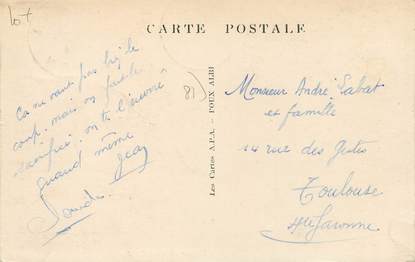 Lot
CARTE POSTALE
81)
Ça ne vaut pas le
coup, mais on fait le
sacrifice, on te l'envoie
quand même
Jean
Les Cartes A.P.A. — POUX ALBI
Monsieur André Sabat
et famille
14 rue des
Toulouse
Hte Garonne